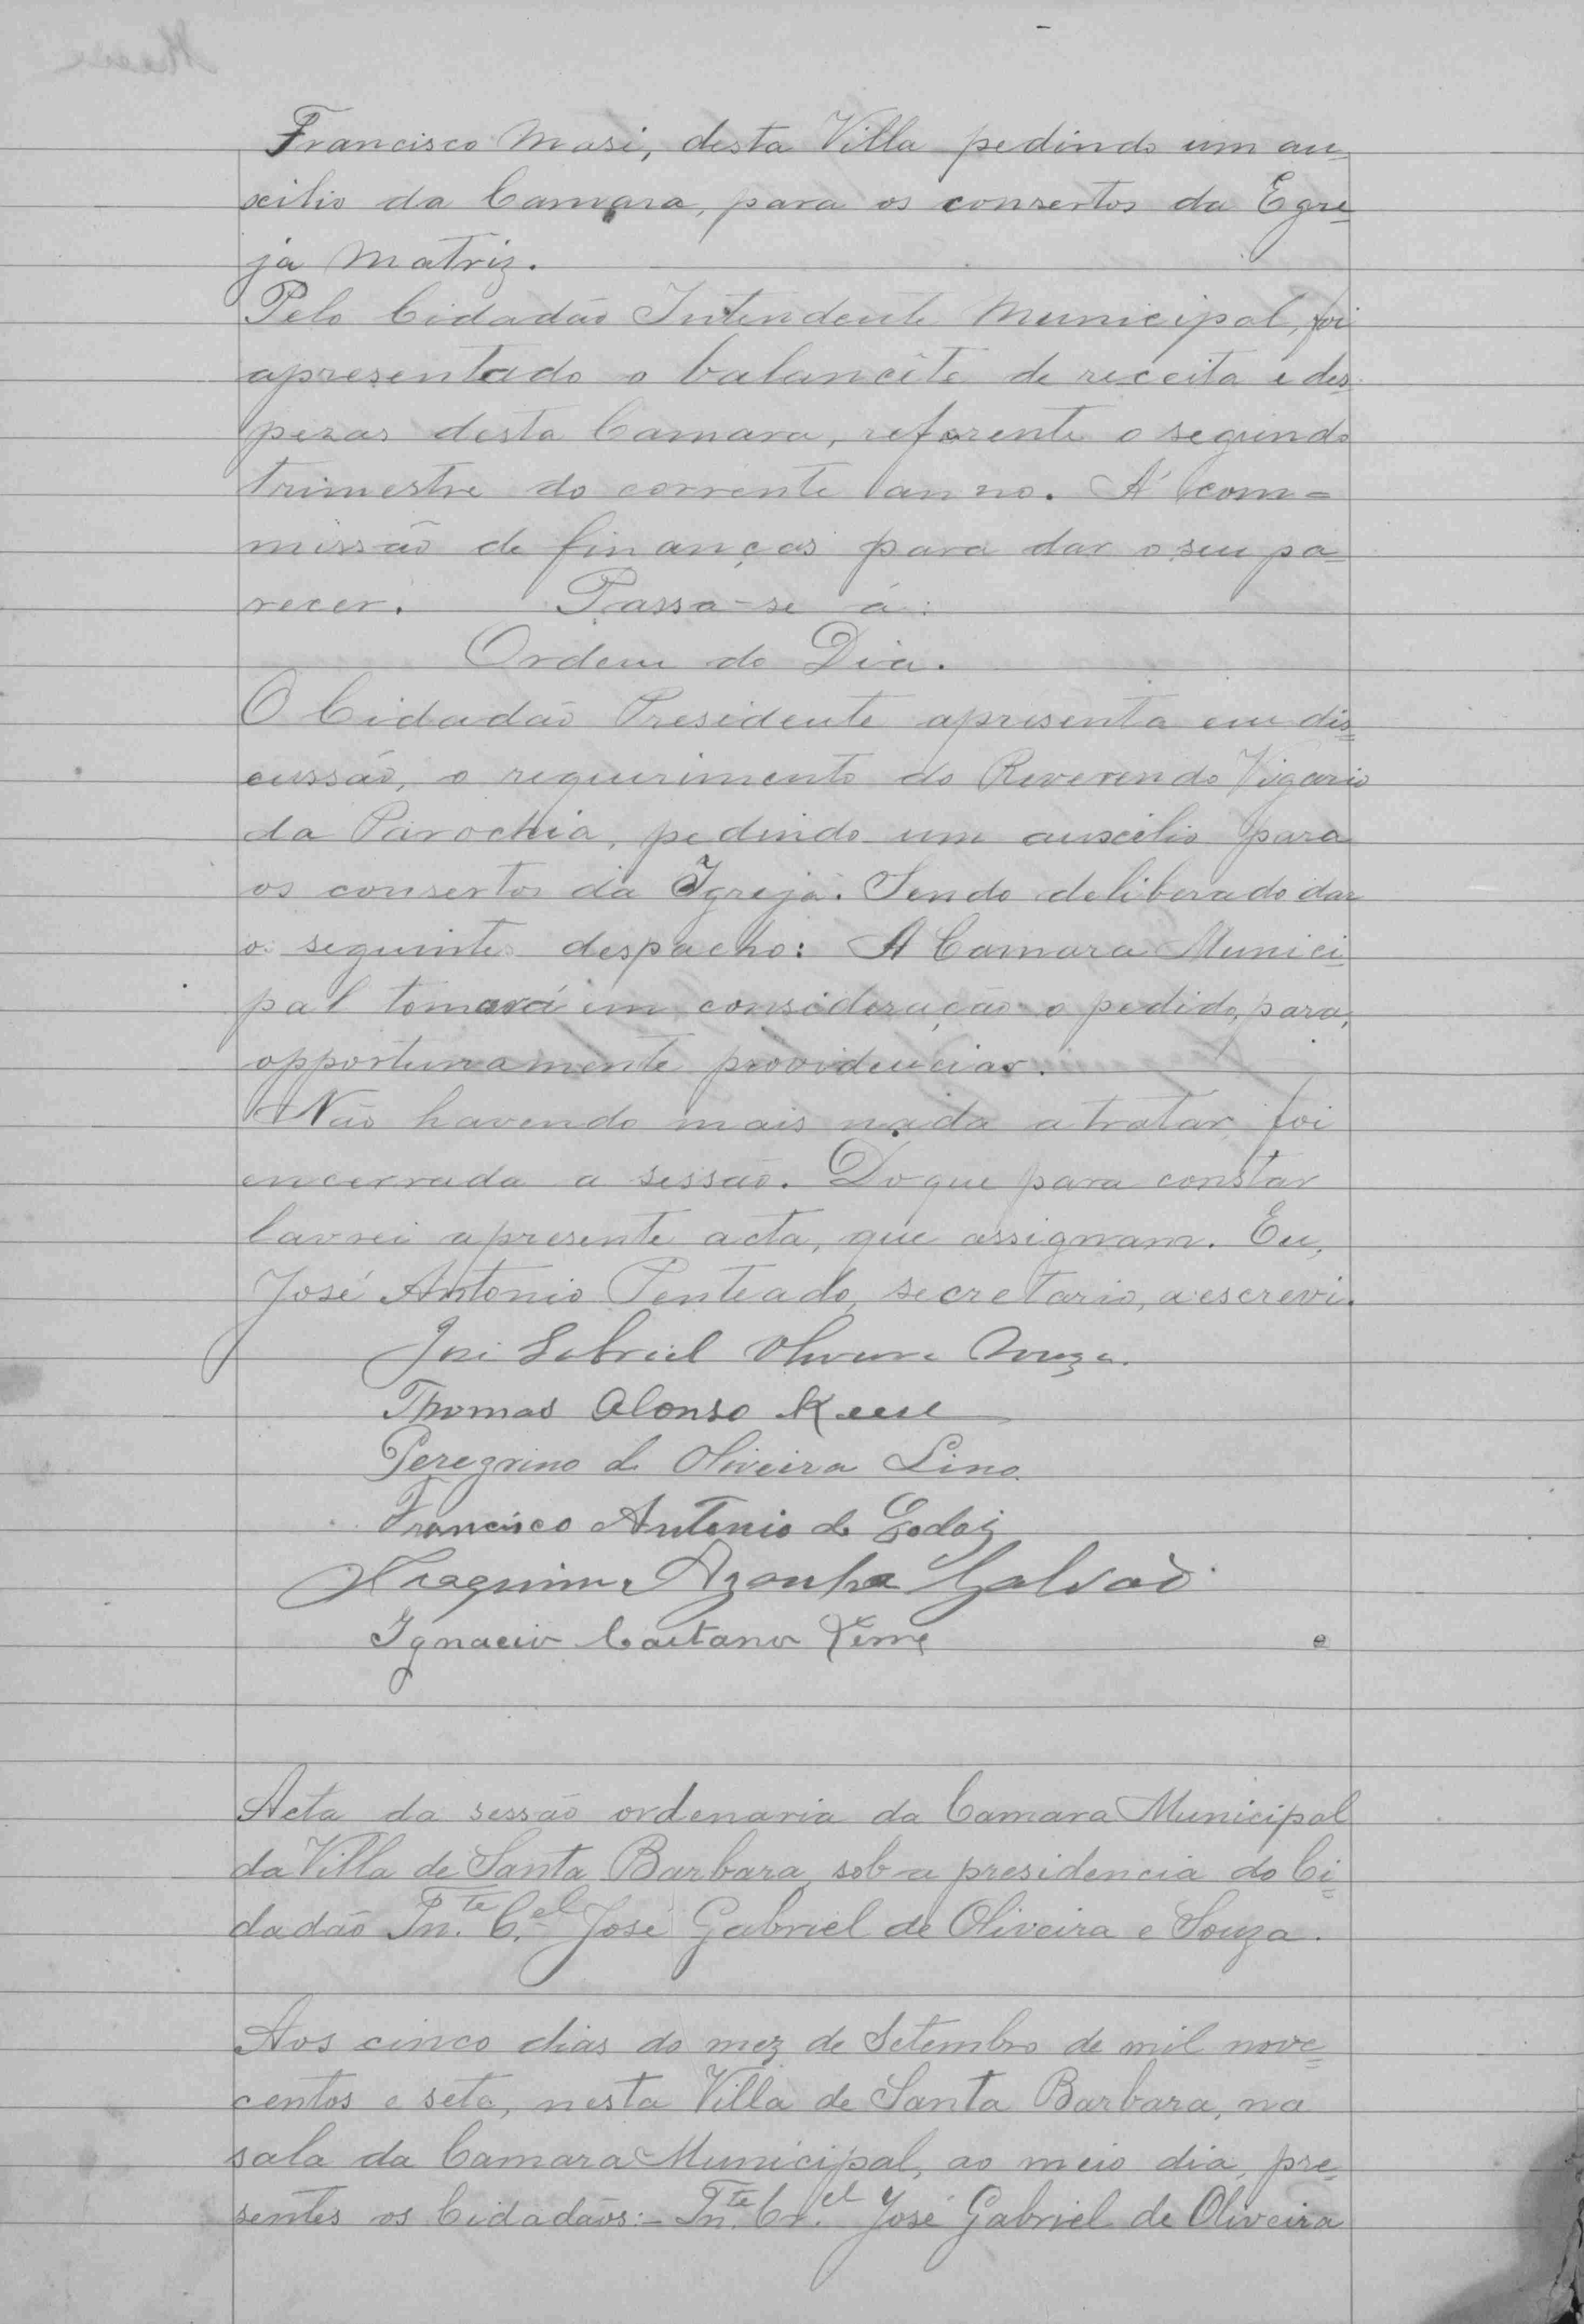 Francisco Masi, desta Villa pedindo um au-
xilio da Camara, para os consertos da Egre-
ja Matriz.
Pelo Cidadão Intendente Municipal, foi
apresentado o balancête de receita e des-
pezas desta Camara, referente o segundo
trimestre do corrente anno. Á com=
missão de finanças para dar o seu pa=
recer. Passa-se á:
Ordem do Dia.
O Cidadão Presidente apresenta em dis=
cussão, o requerimento do Reverendo Vigario
da Parochia, pedindo um auxcilio para
os consertos da Igreja. Sendo deliberado dar
o seguinte despacho: A Camara Munici-
pal tomará em consideração o pedido, para,
opportunamente providenciar.
Não havendo mais nada a tratar foi
encerrada a sessão. Do que para constar
lavrei a presente acta, que assignam. Eu,
José Antonio Penteado, secretario, a escrevi.
José Gabriel Oliveira Souza.
Thomas Alonso Keese
Peregrino de Oliveira Lino
Francisco Antonio de Godoi
Joaquim Azanha Galvão
Ignacio Caetano Leme
e
Acta da sessão ordenaria da Camara Municipal
da Villa de Santa Barbara, sob a presidencia do Ci=
dadão Tn.te C.el José Gabriel de Oliveira e Souza.
Aos cinco dias do mez de Setembro de mil nove=
centos e sete, nesta Villa de Santa Barbara, na
sala da Camara Municipal, ao meio dia, pre=
sentes os Cidadãos:- Tn.te Cr.el José Gabriel de Oliveira